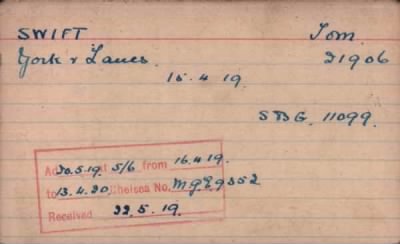 SWIFT Tom.
York & Lancs. 21906
15.4.19.
SBG. 11099.
20.5.19. 5/6 from 16.4.19.
to 13.4.20. Chelsea No.
Received 22.5.19.